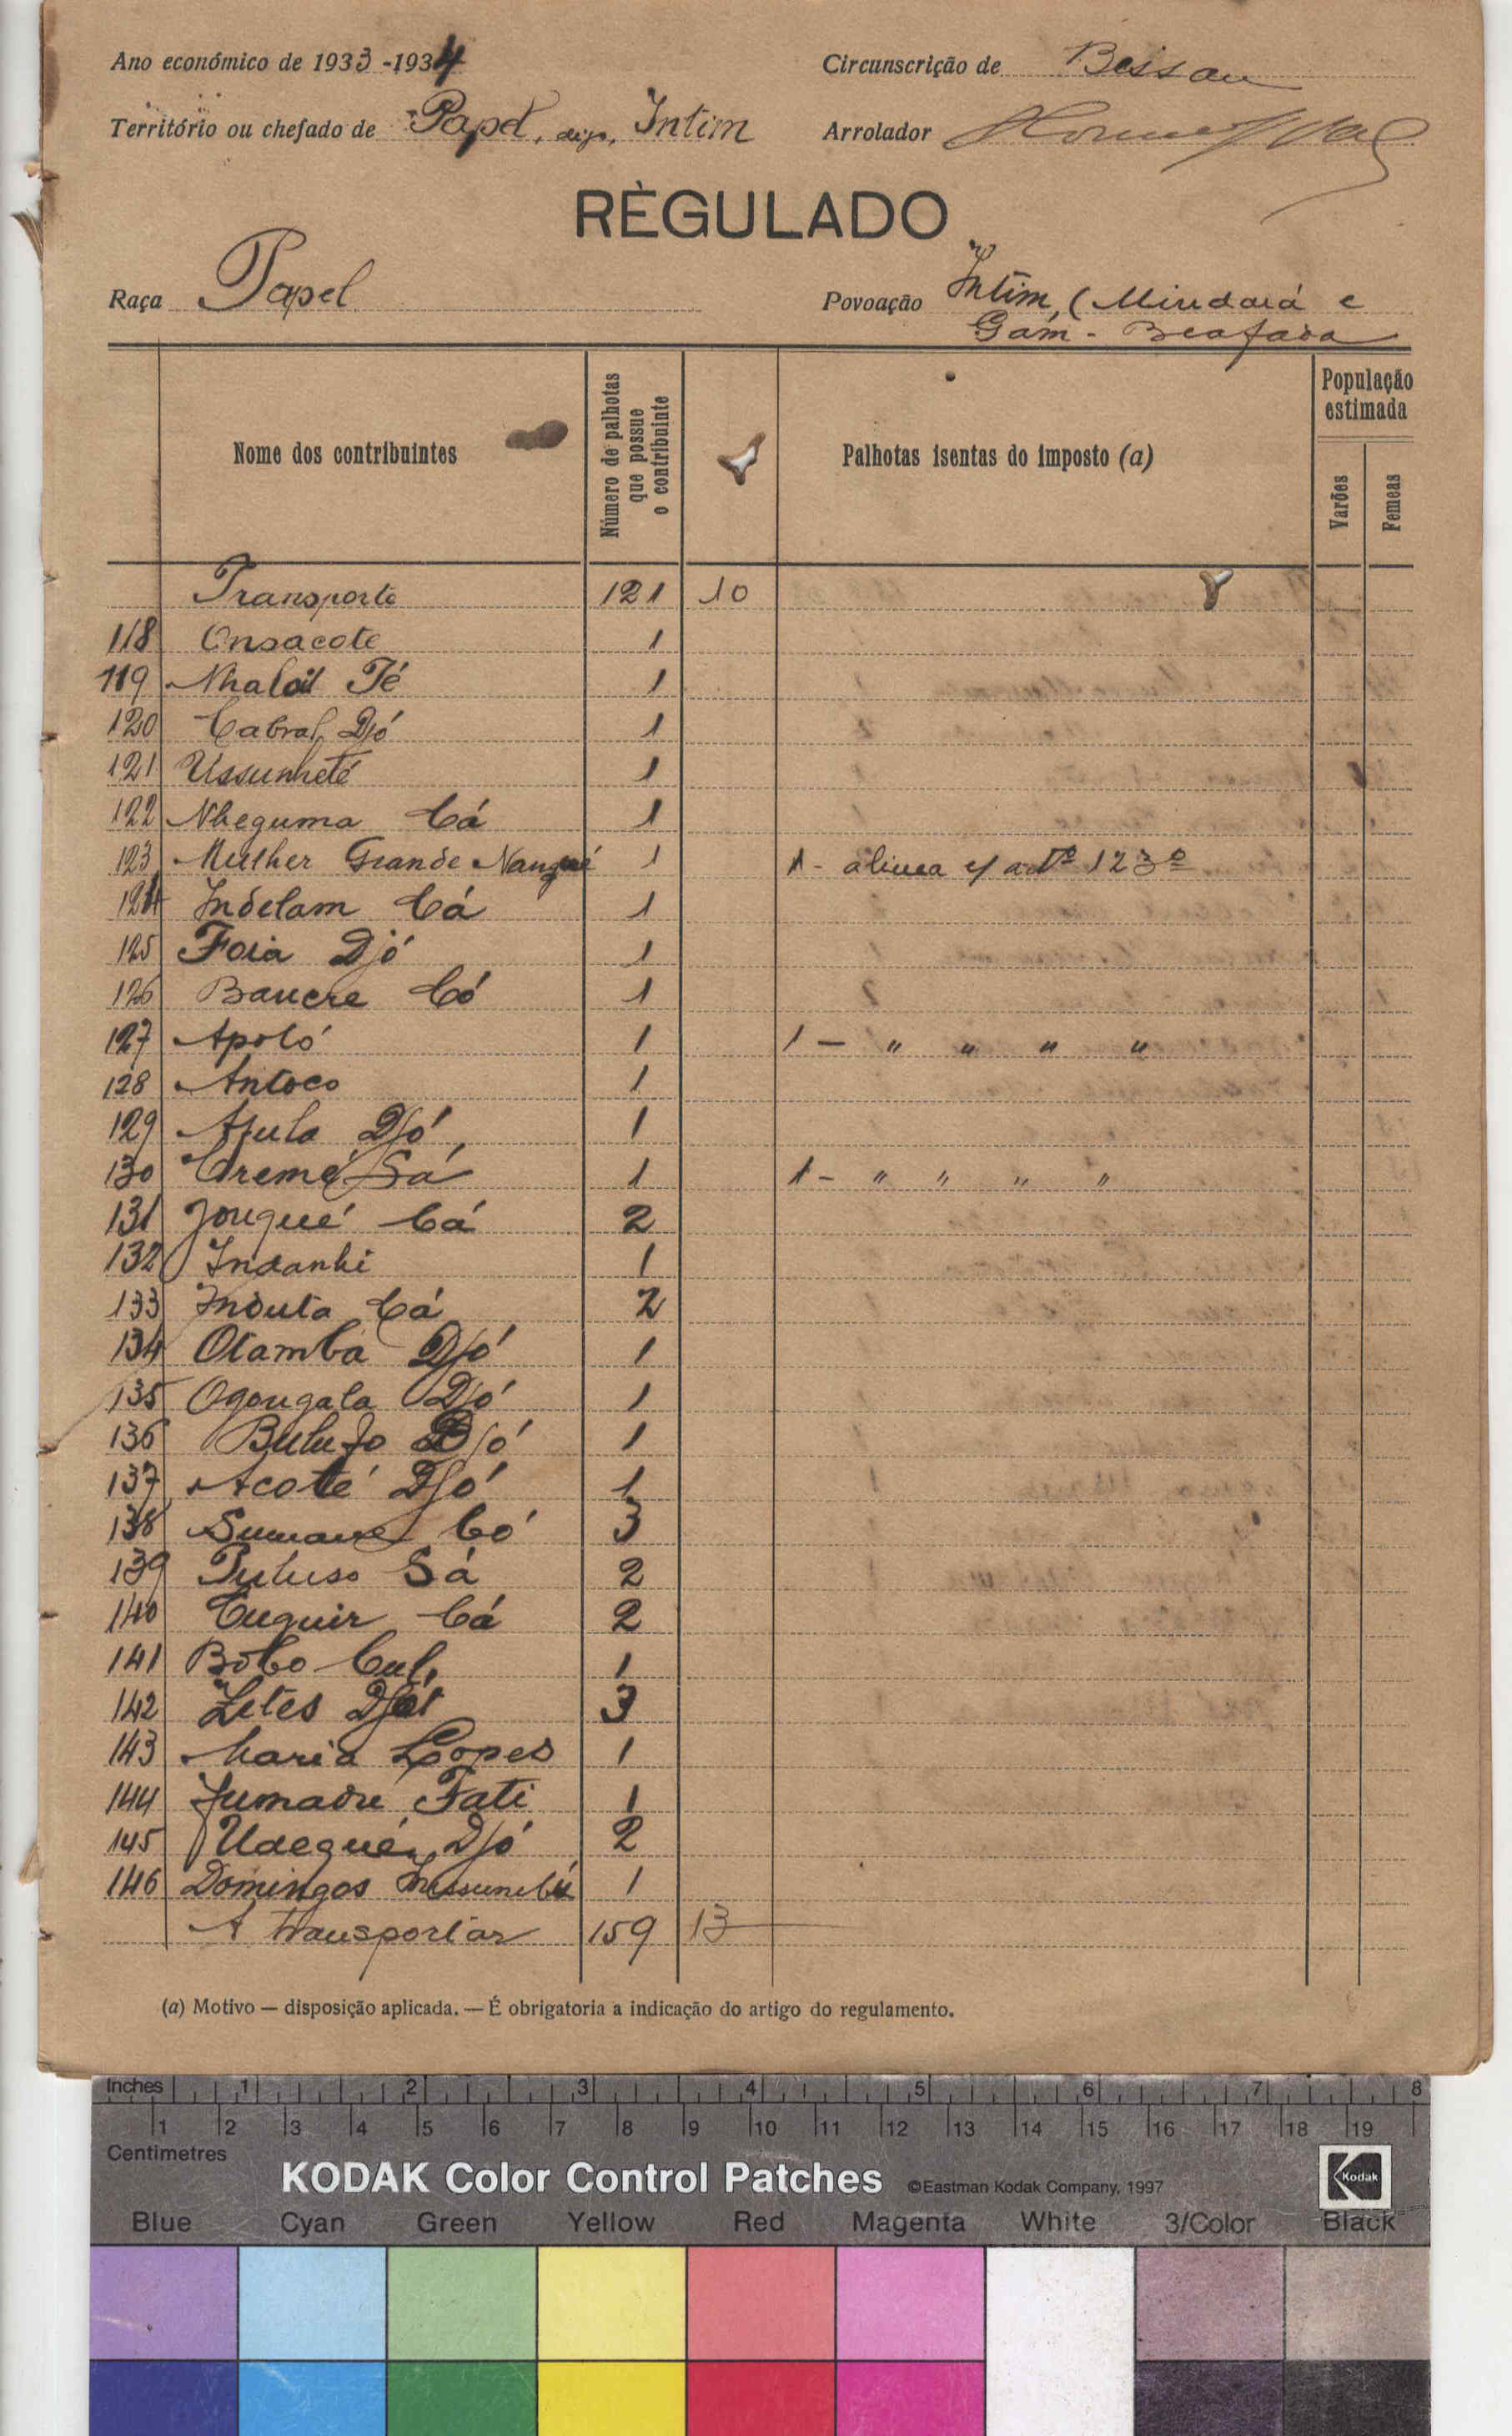 Ano económico de 1933-1934
Circunscrição de Bissau
Território ou chefado de Papel, Intim
Arrolador
RÈGULADO
Raça Papel
Povoação Intim, (Mindará e
Gám - Beafada
Nome dos contribuintes
Número de palhotas que possue o contribuinte
Palhotas isentas do imposto (a)
População estimada
Varões
Femeas
Transporte 121 10
118 Onsacote 1
119 Nhalai Té 1
120 Cabral Djó 1
121 Ussunheté 1
122 Nheguma Cá 1
123 Mulher Grande Nanqué 1 1 - alinea artº 123º
124 Indelam Cá 1
125 Foia Djó 1
126 Baucre Có 1
127 Apoló 1 1 - " " " "
128 Antoco 1
129 Djó 1
130 Cremé Sá 1 1 - " " " "
131 Jouqué Cá 2
132 Indanhi 1
133 Induta Cá 2
134 Otamba Djó 1
135 Ogougala Djó 1
136 Djó 1
137 Acoté Djó 1
138 Có 3
139 Puluso Sá 2
140 Cuguir Cá 2
141 Bobo 1
142 3
143 Maria Lopes 1
144 Jumadu Fati 1
145 Udegué Djó 2
146 Domingos 1
A transportar 159 13
(a) Motivo — disposição aplicada. — É obrigatoria a indicação do artigo do regulamento.
Inches 1 2 3 4 5 6 7 8
1 2 3 4 5 6 7 8 9 10 11 12 13 14 15 16 17 18 19
Centimetres
KODAK Color Control Patches ©Eastman Kodak Company, 1997 Kodak
Blue Cyan Green Yellow Red Magenta White 3/Color Black